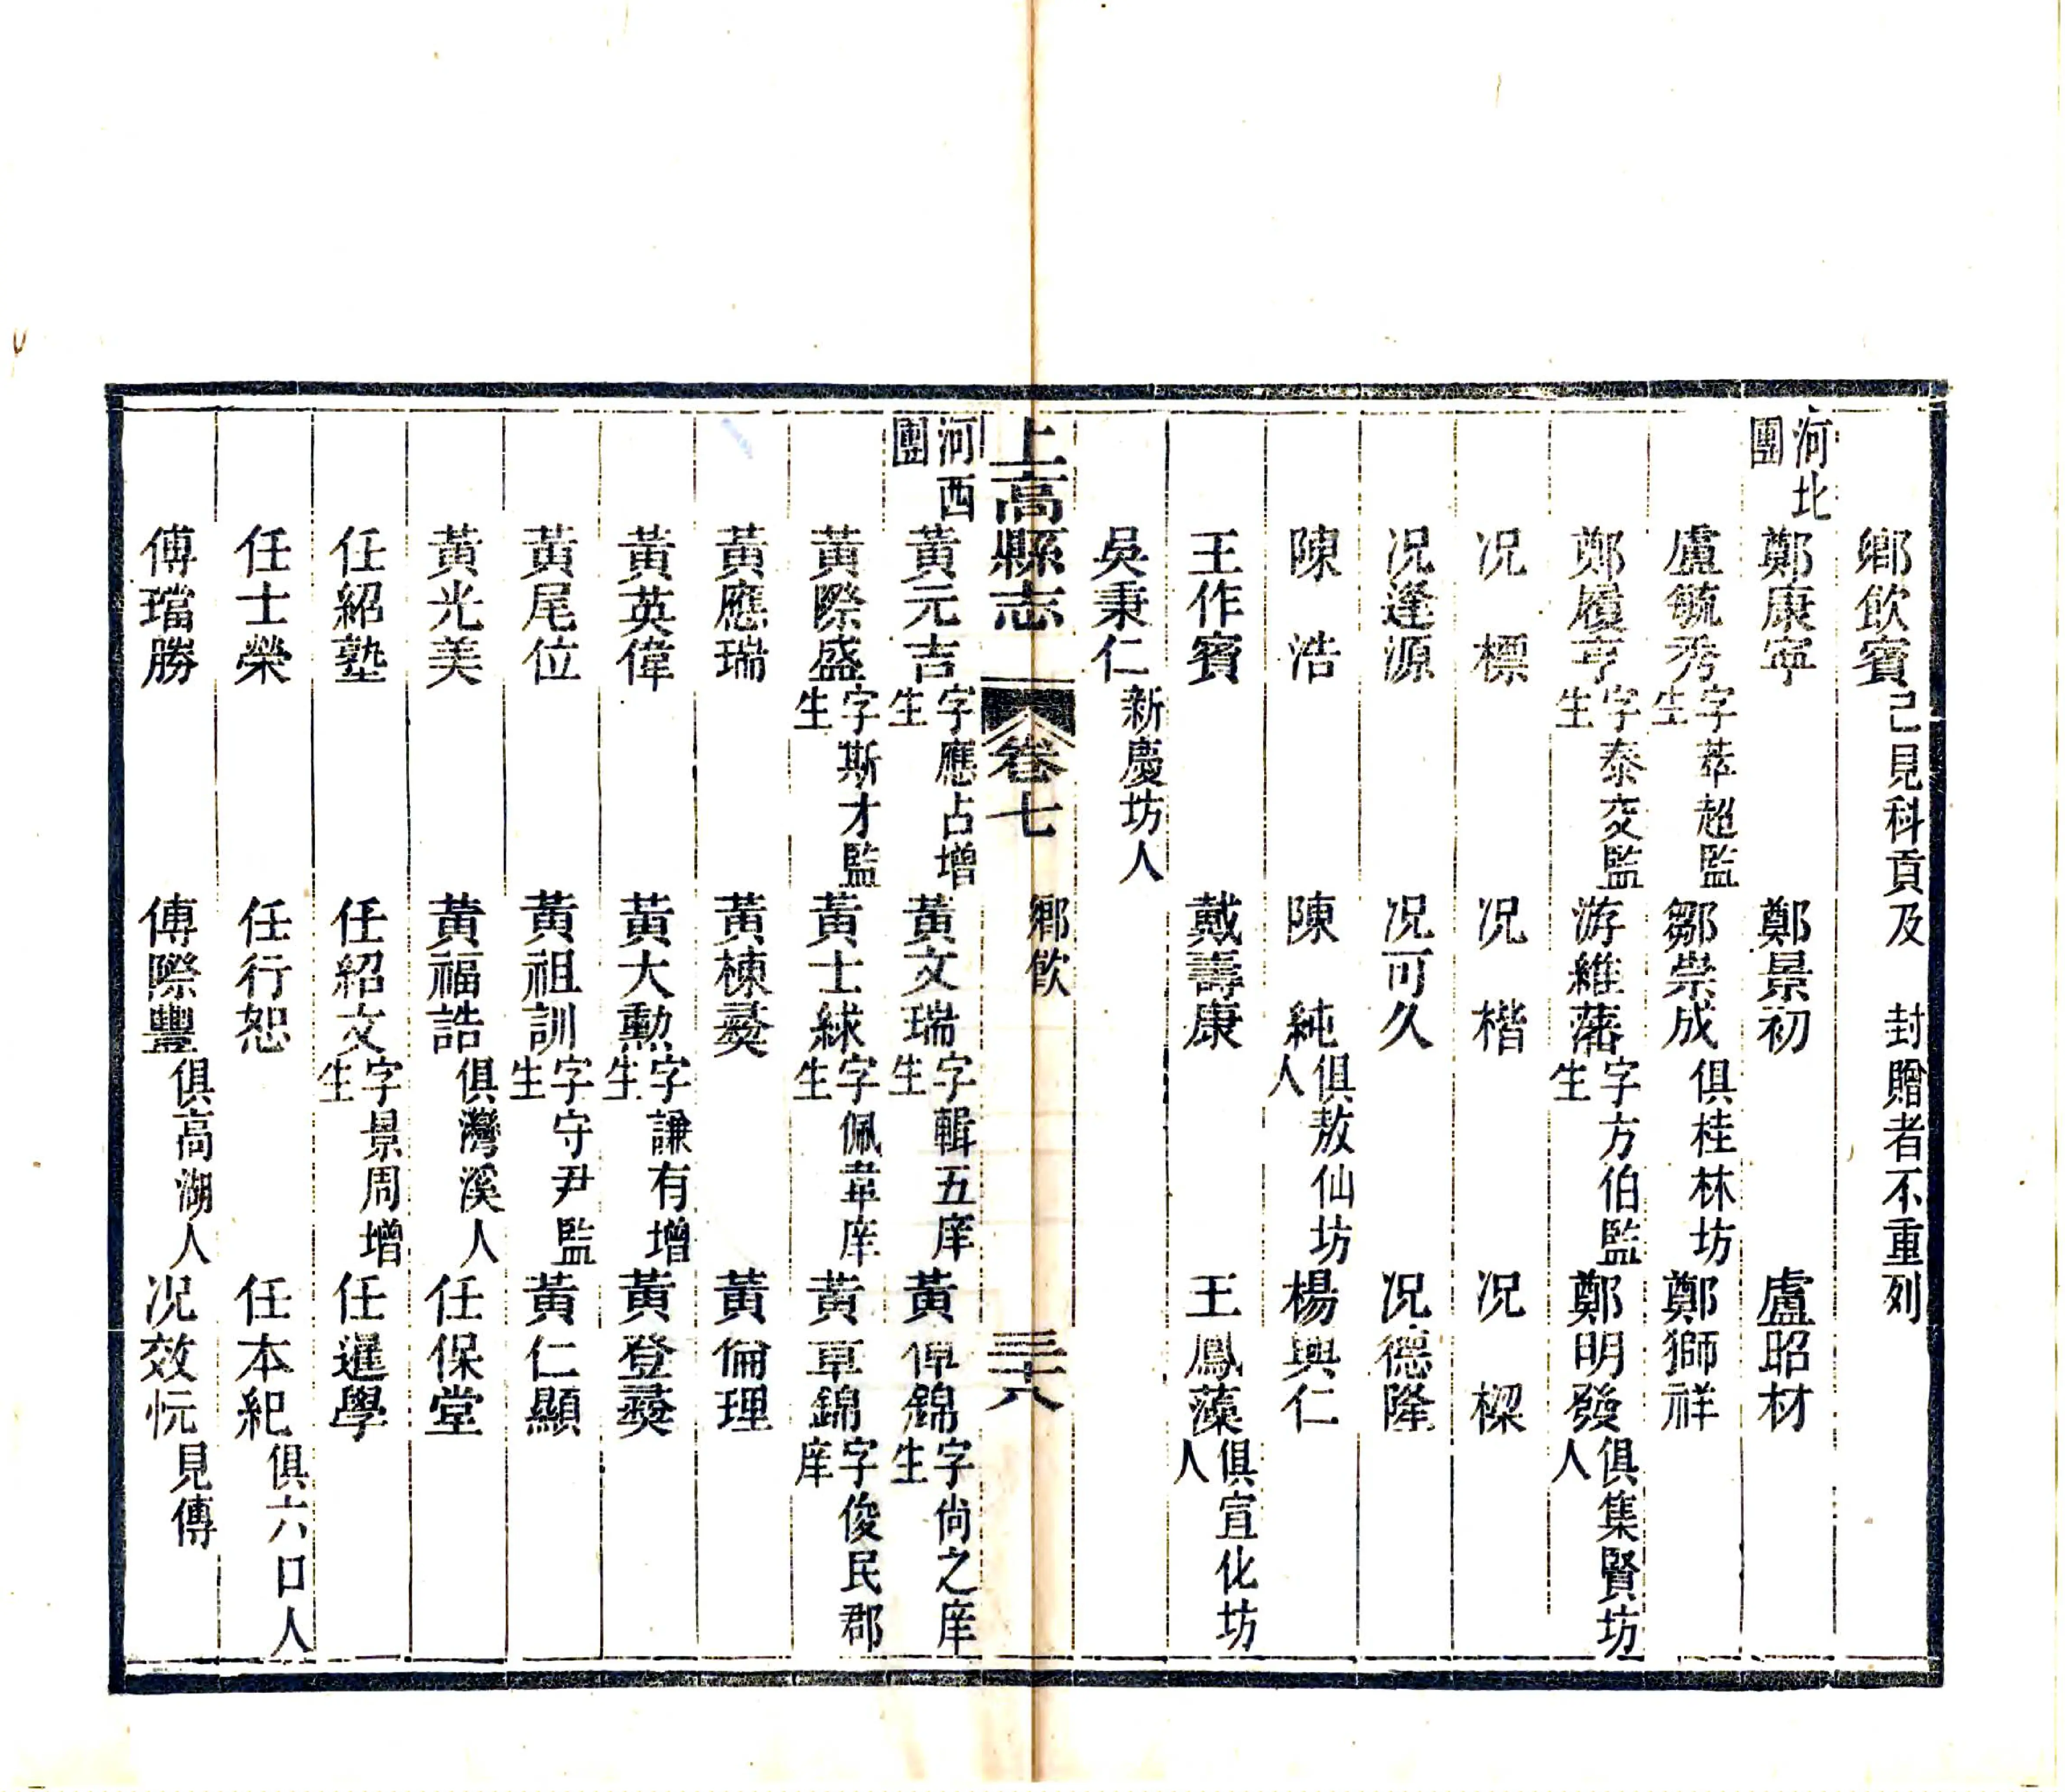 鄉飲賓已見科貢及 封贈者不重列
河北團 鄭康寧 鄭景初 盧昭材
盧毓秀字萃超監生 鄒崇成俱桂林坊 鄭獅祥
鄭履亨字泰交監生 游維藩字方伯監生 鄭明發俱集賢坊人
况標 况楷 况樑
况逢源 况可久 况德隆
陳浩 陳純俱敖仙坊人 楊興仁
王作賓 戴壽康 王鳳藻俱宣化坊人
吳秉仁新慶坊人
上高縣志 卷七 鄉飲 三十六
河西團 黃元吉字應占增生 黃文瑞字輯五庠生 黃倬錦字尙之庠生
黃際盛字斯才監生 黃士絿字佩韋庠生 黃章錦字俊民郡庠
黃應瑞 黃棟彝 黃倫理
黃英偉 黃大勳字謙有增生 黃登彝
黃尾位 黃祖訓字守尹監生 黃仁顯
黃光美 黃福誥俱灣溪人 任保堂
任紹塾 任紹文字景周增生 任暹學
任士榮 任行恕 任本紀俱六口人
傅璫勝 傅際豐俱高湖人 况效忨見傳